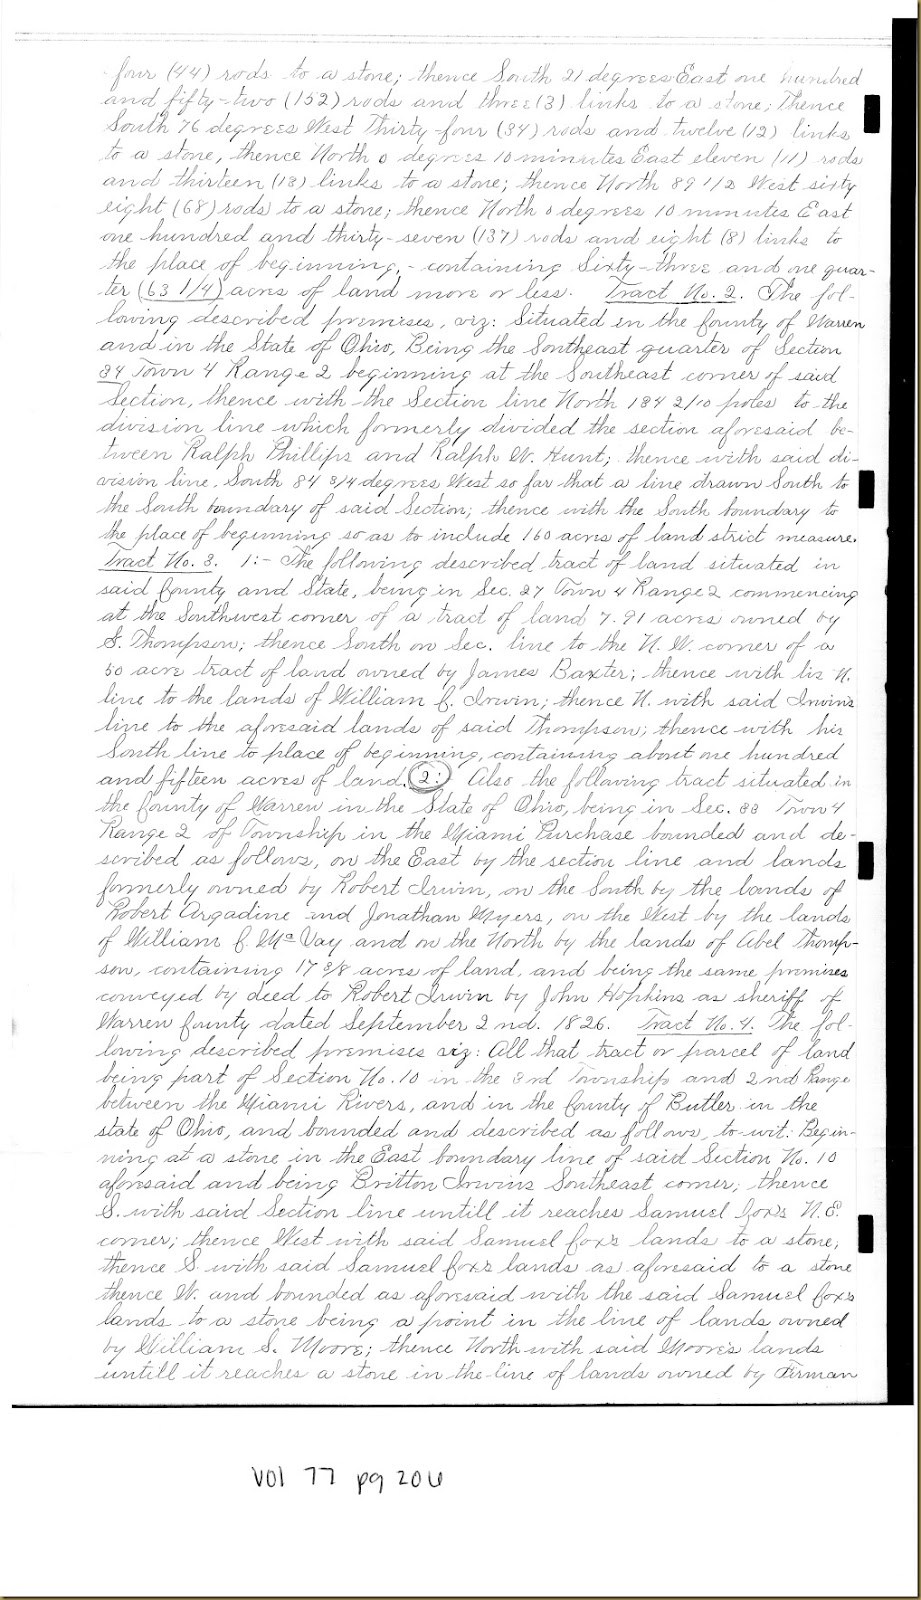 four (44) rods to a stone; thence South 21 degrees East one hundred
and fifty-two (152) rods and three (3) links to a stone; Thence
South 76 degrees West Thirty-four (34) rods and twelve (12) links
to a stone, thence North 0 degrees 10 minutes East eleven (11) rods
and thirteen (13) links to a stone; thence North 89 1/2 West sixty
eight (68) rods to a stone; thence North 0 degrees 10 minutes East
one hundred and thirty-seven (137) rods and eight (8) links to
the place of beginning, - containing Sixty-three and one quar-
ter (63 1/4) acres of land more or less. Tract No. 2. The fol-
lowing described premises, viz: Situated in the County of Warren
and in the State of Ohio, Being the Southeast quarter of Section
34 Town 4 Range 2 beginning at the Southeast corner of said
Section, thence with the Section line North 184 2/10 poles to the
division line which formerly divided the section aforesaid be-
tween Ralph Phillips and Ralph W. Hunt; thence with said di-
vision line, South 84 3/4 degrees West so far that a line drawn South to
the South boundary of said Section; thence with the South boundary to
the place of beginning so as to include 160 acres of land strict measure.
Tract No. 3. 1:- The following described tract of land situated in
said County and State, being in Sec. 27 Town 4 Range 2 commencing
at the Southwest corner of a tract of land 7.91 acres owned by
S. Thompson; thence South on Sec. line to the N. W. corner of a
50 acre tract of land owned by James Baxter; thence with his N.
line to the lands of William C. Irwin; thence N. with said Irwin's
line to the aforesaid lands of said Thompson; thence with his
South line to place of beginning, containing about one hundred
and fifteen acres of land. 2: Also the following tract situated in
the County of Warren in the State of Ohio, being in Sec. 33 Town 4
Range 2 of Township in the Miami Purchase bounded and de-
scribed as follows, on the East by the section line and lands
formerly owned by Robert Irwin, on the South by the lands of
Robert Argadine and Jonathan Myers, on the West by the lands
of William C. McVay and on the North by the lands of Abel Thomp-
son, containing 17 3/8 acres of land, and being the same premises
conveyed by deed to Robert Irwin by John Hopkins as sheriff of
Warren County dated September 2nd. 1826. Tract No. 4. The fol-
lowing described premises viz: All that tract or parcel of land
being part of Section No. 10 in the 3rd Township and 2nd Range
between the Miami Rivers, and in the County of Butler in the
state of Ohio, and bounded and described as follows, to-wit: Begin-
ning at a stone in the East boundary line of said Section No. 10
aforesaid and being Britton Irwins Southeast corner; thence
S. with said Section line untill it reaches Samuel Cox's N.E.
corner; thence West with said Samuel Cox's lands to a stone;
thence S. with said Samuel Cox's lands as aforesaid to a stone
thence W. and bounded as aforesaid with the said Samuel Cox's
lands to a stone being a point in the line of lands owned
by William S. Moore; thence North with said Moore's lands
untill it reaches a stone in the line of lands owned by Firman
Vol 77 pg 206